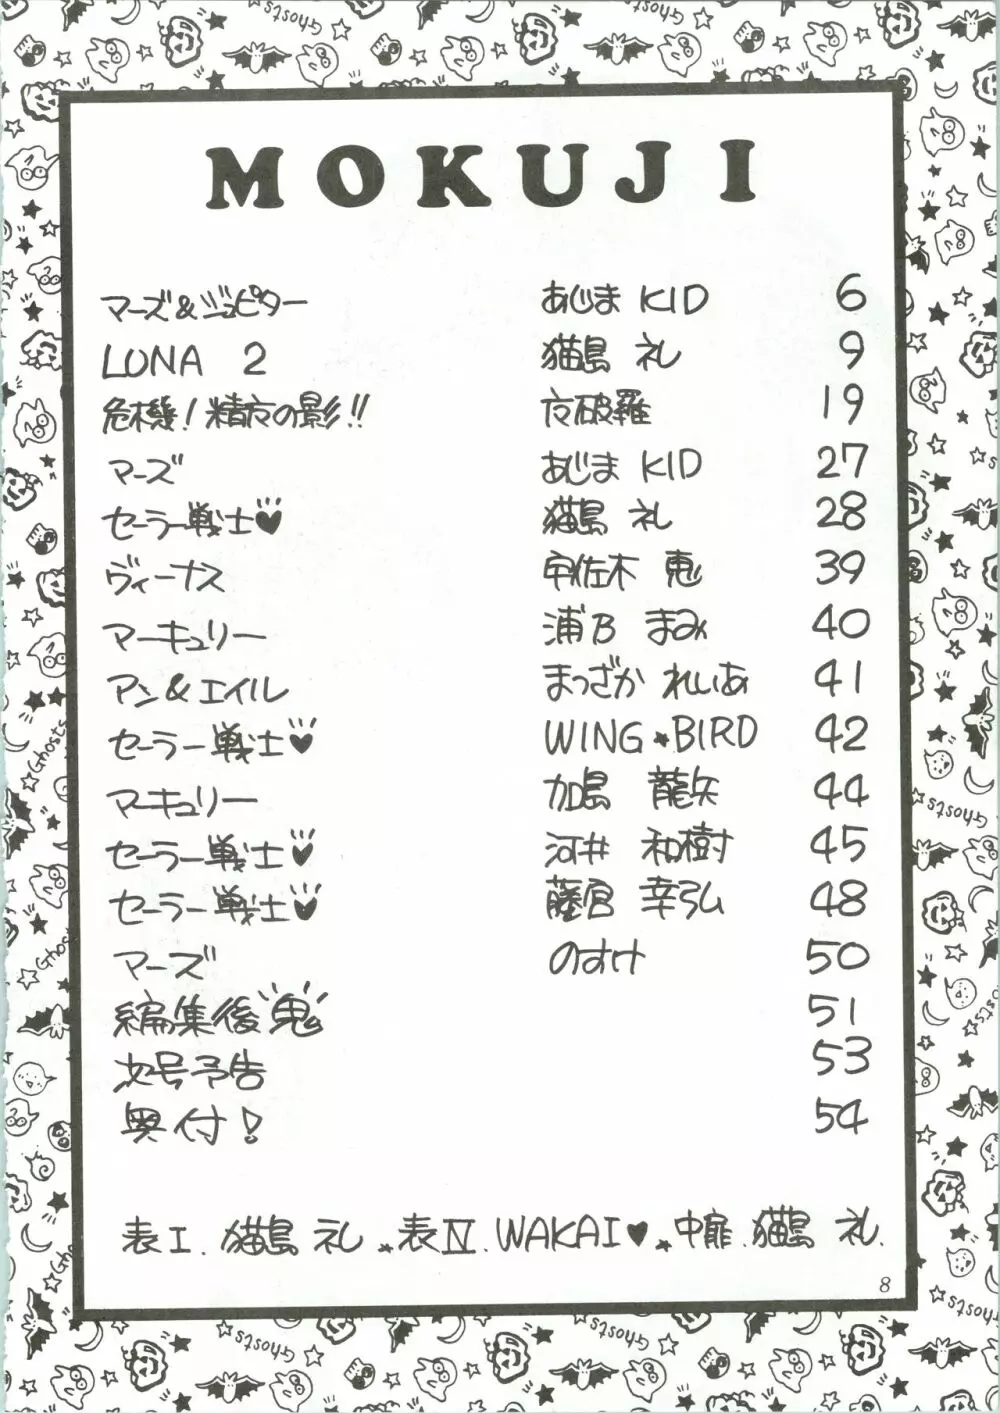 MOKUJI
マーズ&ジュピター あじま KID 6
LUNA 2 猫島 礼 9
危機!精友の影!! 夜破羅 19
マーズ あじま KID 27
セーラー戦士♥ 猫島 礼 28
ヴィーナス 宇佐木 恵 39
マーキュリー 浦乃 まみ 40
アン&エイル まつざか れいあ 41
セーラー戦士♥ WING★BIRD 42
マーキュリー 加島 龍矢 44
セーラー戦士♥ 河井 和樹 45
セーラー戦士♥ 藤宮 幸弘 48
マーズ のすけ 50
編集後鬼 51
次号予告 53
奥付! 54
表I.猫島 礼.★表IV.WAKAI♥.★中扉.猫島 礼.
8
Ghosts